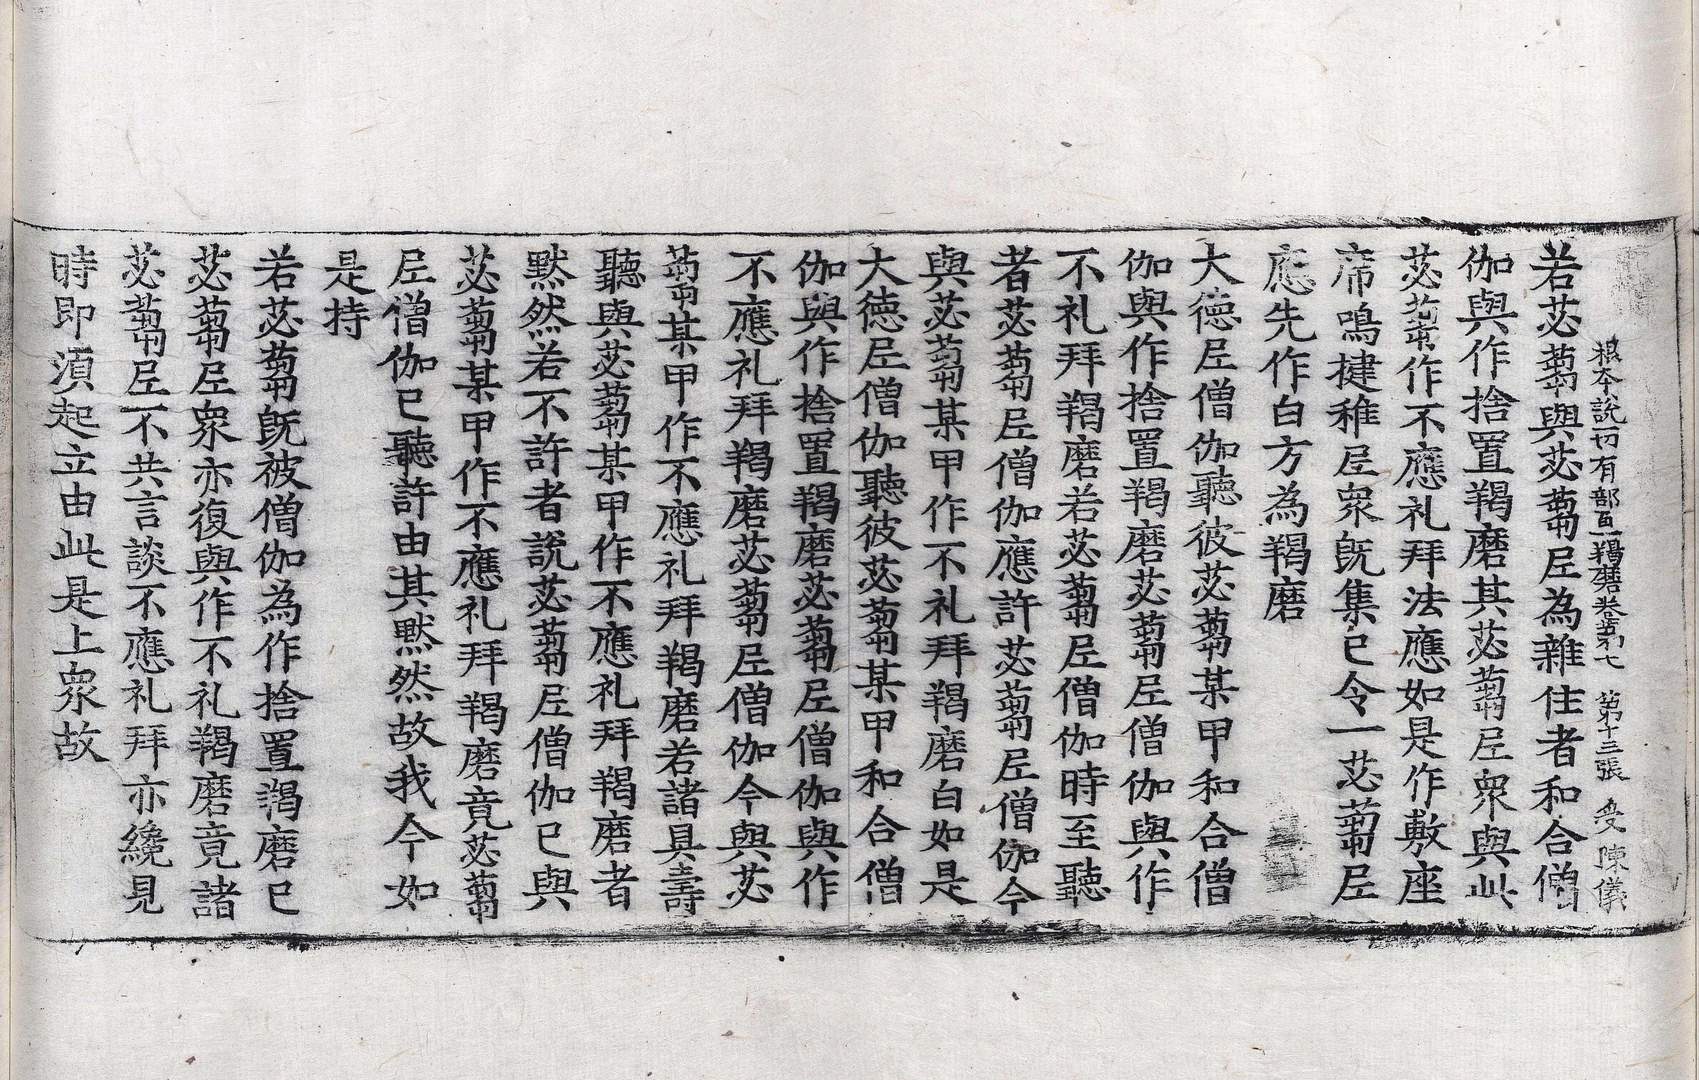 根本說一切有部百一羯磨卷第七　第十三張　受　陳儀
若苾蒭與苾蒭尼為雜住者和合僧
伽與作捨置羯磨其苾蒭尼眾與此
苾蒭作不應礼拜法應如是作敷座
席鳴揵稚尼眾既集已令一苾蒭尼
應先作白方為羯磨
大德尼僧伽聽彼苾蒭某甲和合僧
伽與作捨置羯磨苾蒭尼僧伽與作
不礼拜羯磨若苾蒭尼僧伽時至聽
者苾蒭尼僧伽應許苾蒭尼僧伽今
與苾蒭某甲作不礼拜羯磨白如是
大德尼僧伽聽彼苾蒭某甲和合僧
伽與作捨置羯磨苾蒭尼僧伽與作
不應礼拜羯磨苾蒭尼僧伽今與苾
蒭某甲作不應礼拜羯磨若諸具壽
聽與苾蒭某甲作不應礼拜羯磨者
默然若不許者說苾蒭尼僧伽已與
苾蒭某甲作不應礼拜羯磨竟苾蒭
尼僧伽已聽許由其默然故我今如
是持
若苾蒭既被僧伽為作捨置羯磨已
苾蒭尼眾亦復與作不礼羯磨竟諸
苾蒭尼不共言談不應礼拜亦纔見
時即須起立由此是上眾故